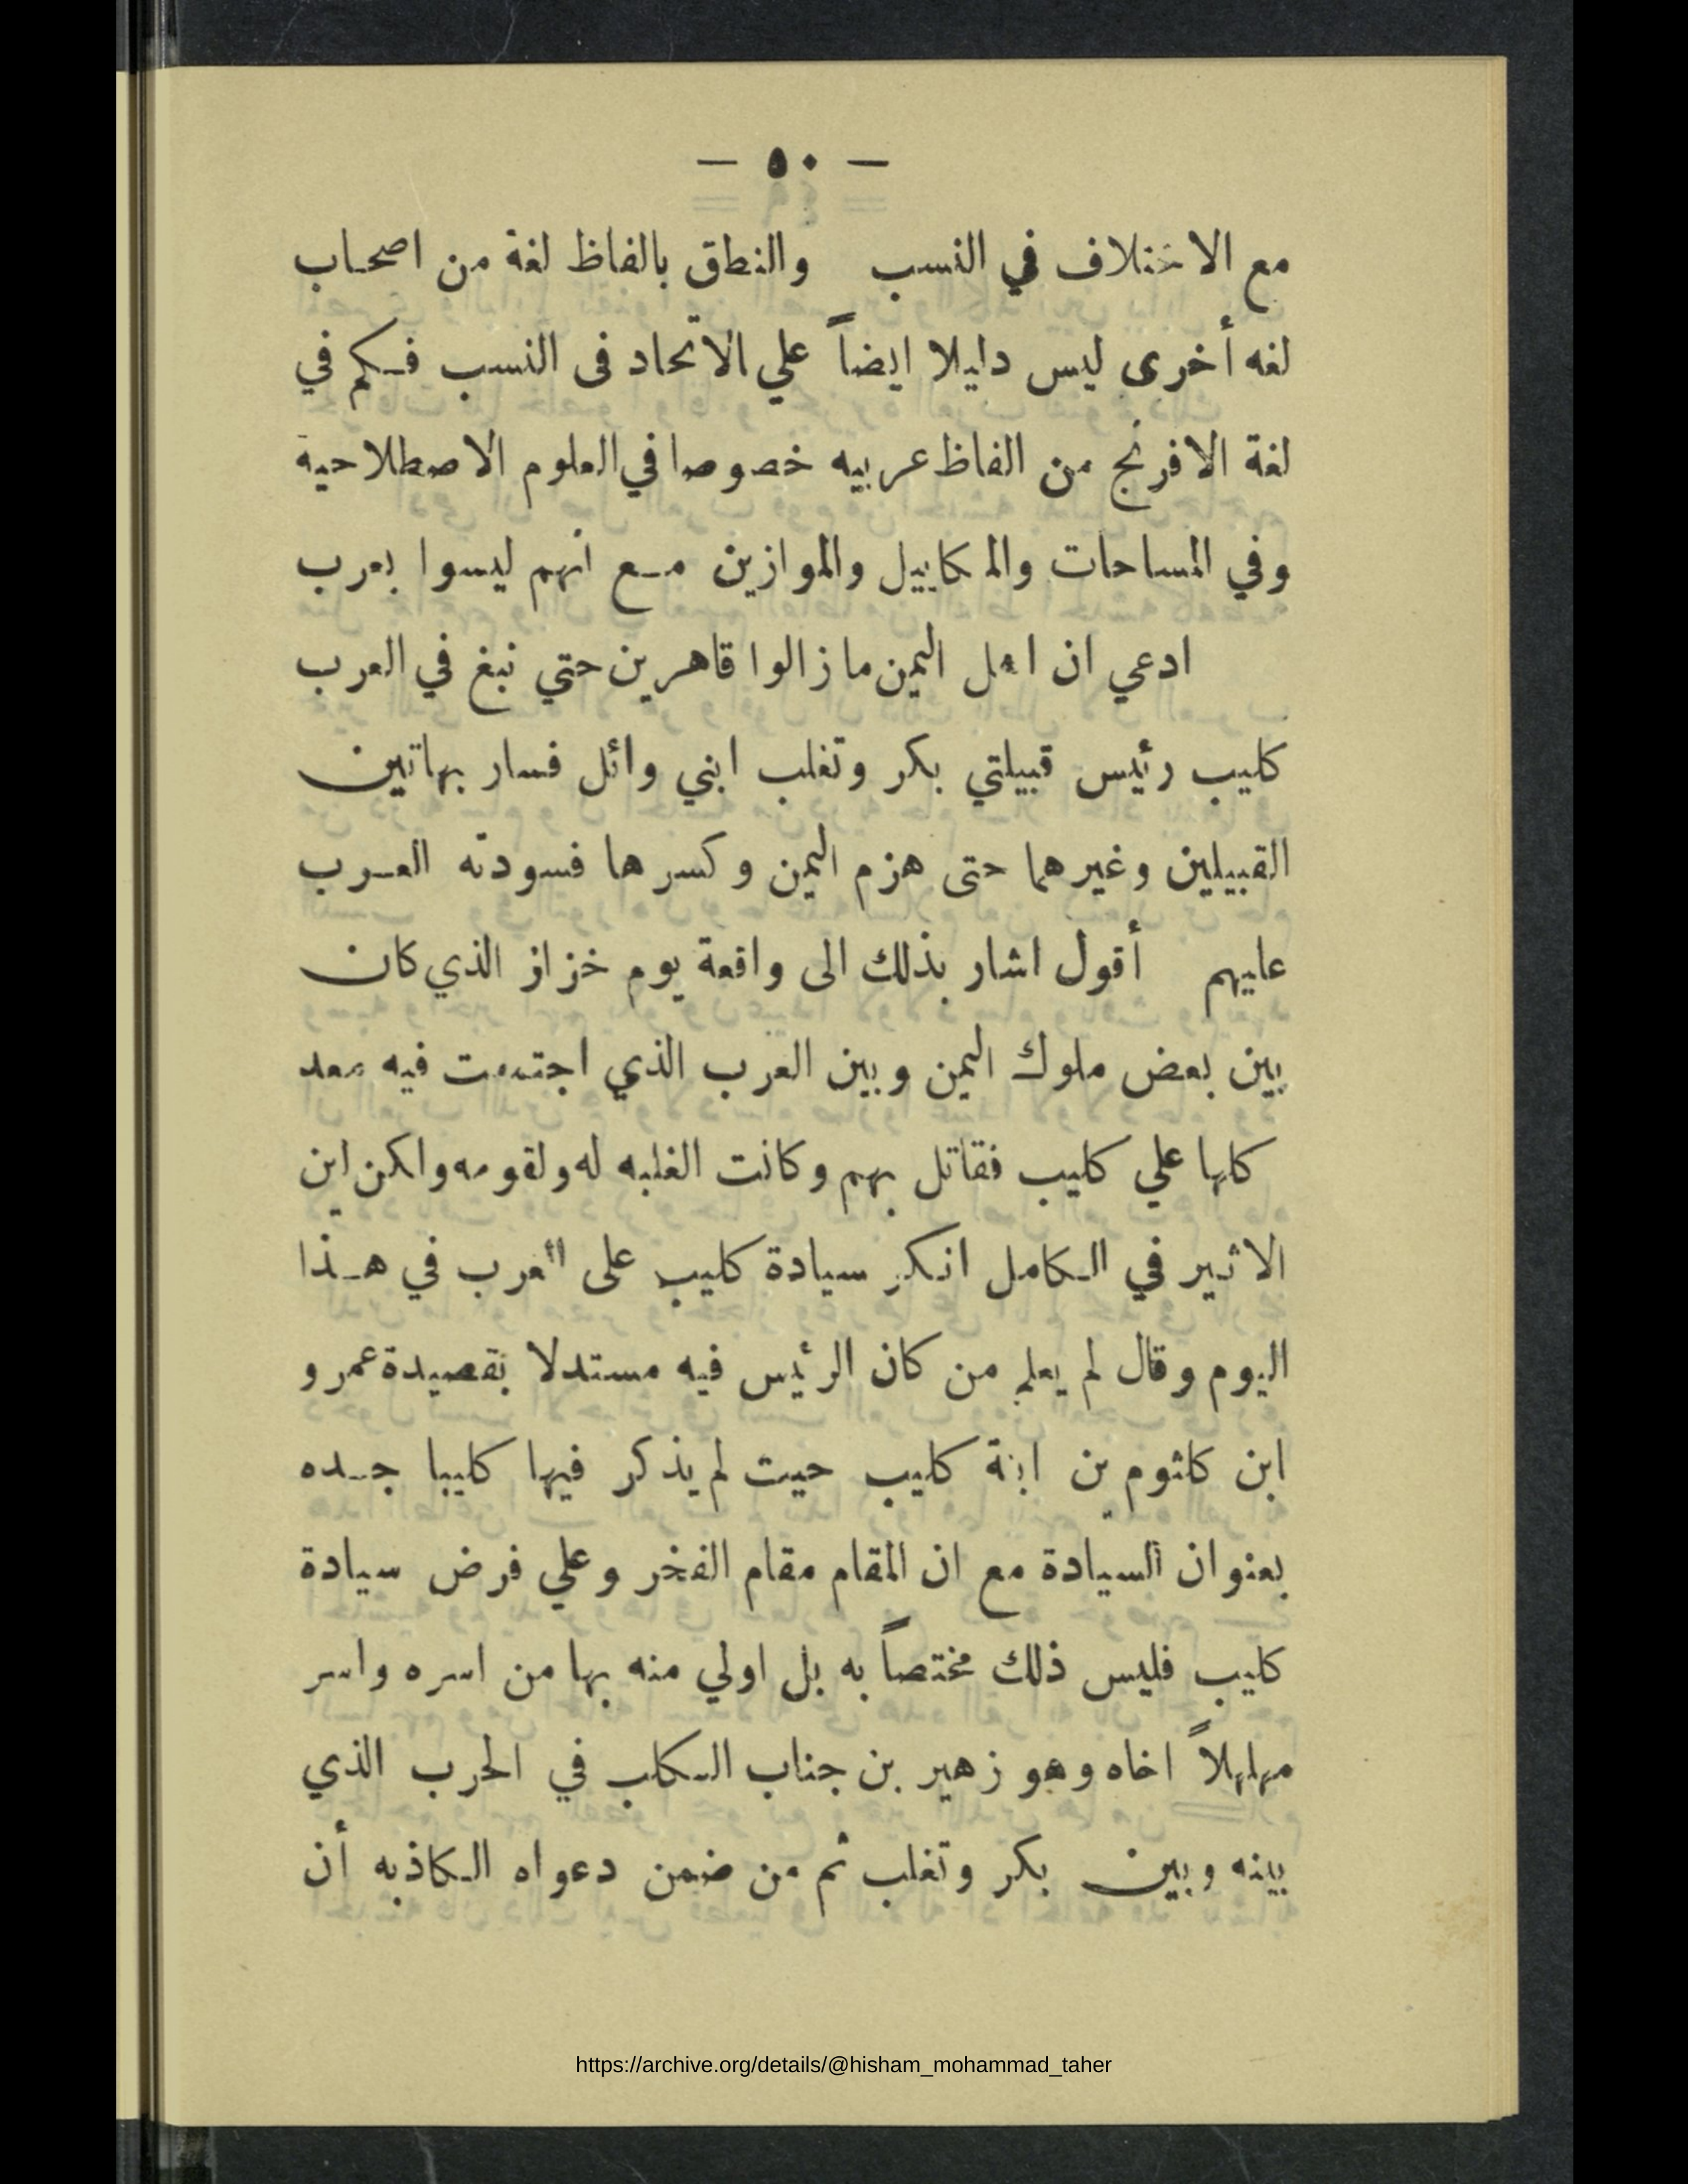 — ٥٠ —
مع الاختلاف في النسب والنطق بالفاظ لغة من اصحاب
لغه أخرى ليس دليلا ايضاً علي الاتحاد فى النسب فكم في
لغة الافرنج من الفاظ عربيه خصوصا في العلوم الاصطلاحية
وفي المساحات والمكاييل والموازين مع انهم ليسوا بعرب
ادعي ان اهل اليمن ما زالوا قاهرين حتي نبغ في العرب
كليب رئيس قبيلتي بكر وتغلب ابني وائل فسار بهاتين
القبيلين وغيرهما حتى هزم اليمن وكسرها فسودته العرب
عليهم أقول اشار بذلك الى واقعة يوم خزاز الذي كان
بين بعض ملوك اليمن وبين العرب الذي اجتمعت فيه معد
كلها علي كليب فقاتل بهم وكانت الغلبه له ولقومه ولكن ابن
الاثير في الكامل انكر سيادة كليب على العرب في هذا
اليوم وقال لم يعلم من كان الرئيس فيه مستدلا بقصيدة عمرو
ابن كلثوم بن ابنة كليب حيت لم يذكر فيها كليبا جده
بعنوان السيادة مع ان المقام مقام الفخر وعلي فرض سيادة
كليب فليس ذلك مختصاً به بل اولي منه بها من اسره واسر
مهلهلاً اخاه وهو زهير بن جناب الكلب في الحرب الذي
بينه وبين بكر وتغلب ثم من ضمن دعواه الكاذبه أن
https://archive.org/details/@hisham_mohammad_taher